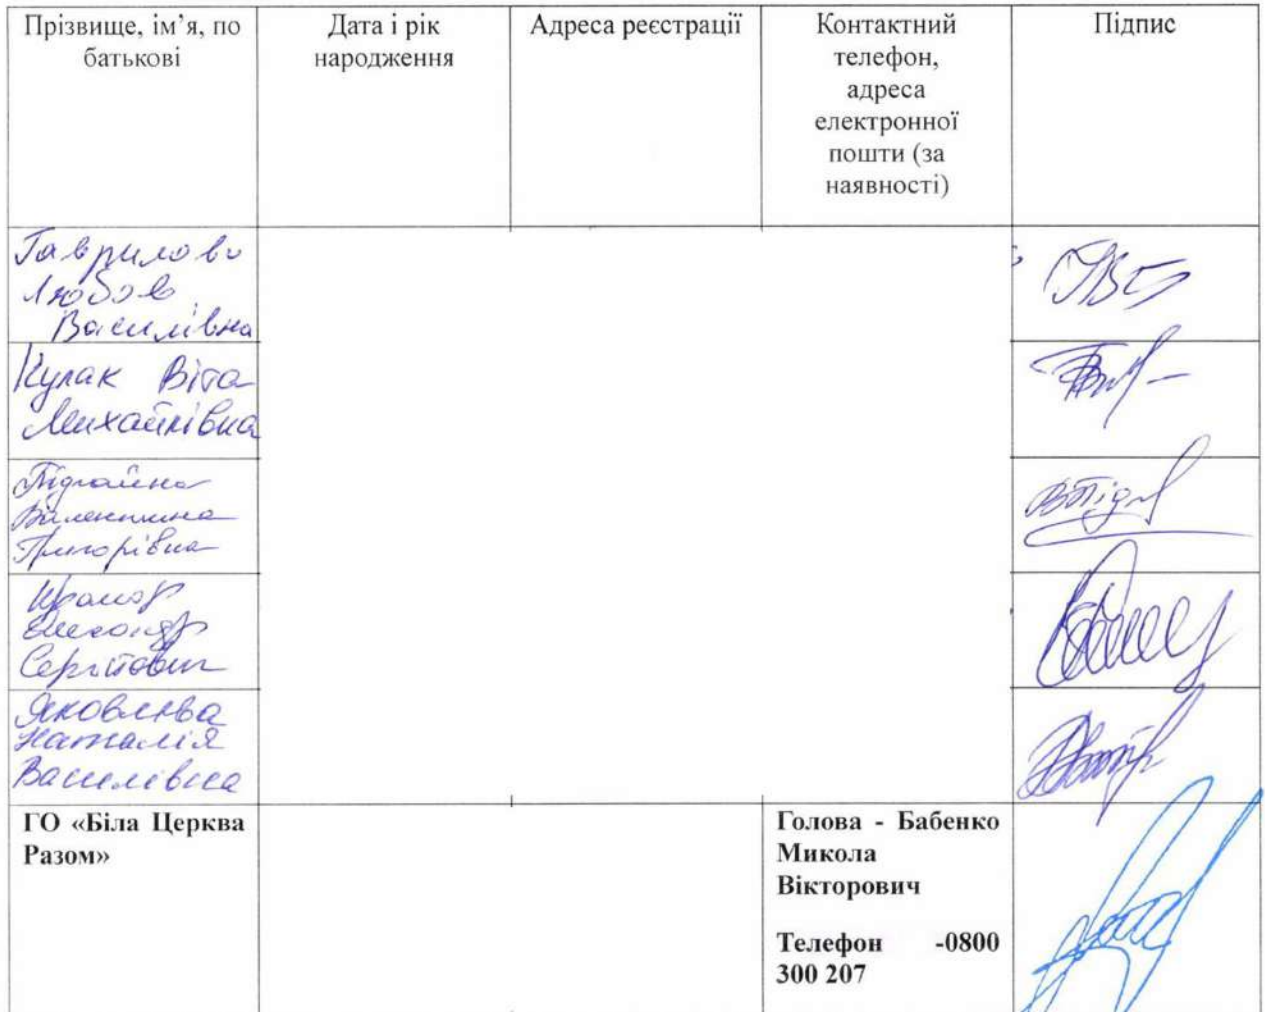 Прізвище, ім’я, по
батькові
Дата і рік
народження
Адреса реєстрації
Контактний
телефон,
адреса
електронної
пошти (за
наявності)
Підпис
Гаврилова
Любов
Василівна
Кулак Віта
Михайлівна
Підгайна
Валентина
Григорівна
Олександр
Сергійович
Яковлєва
Наталія
Василівна
ГО «Біла Церква
Разом»
Голова - Бабенко
Микола
Вікторович
Телефон -0800
300 207